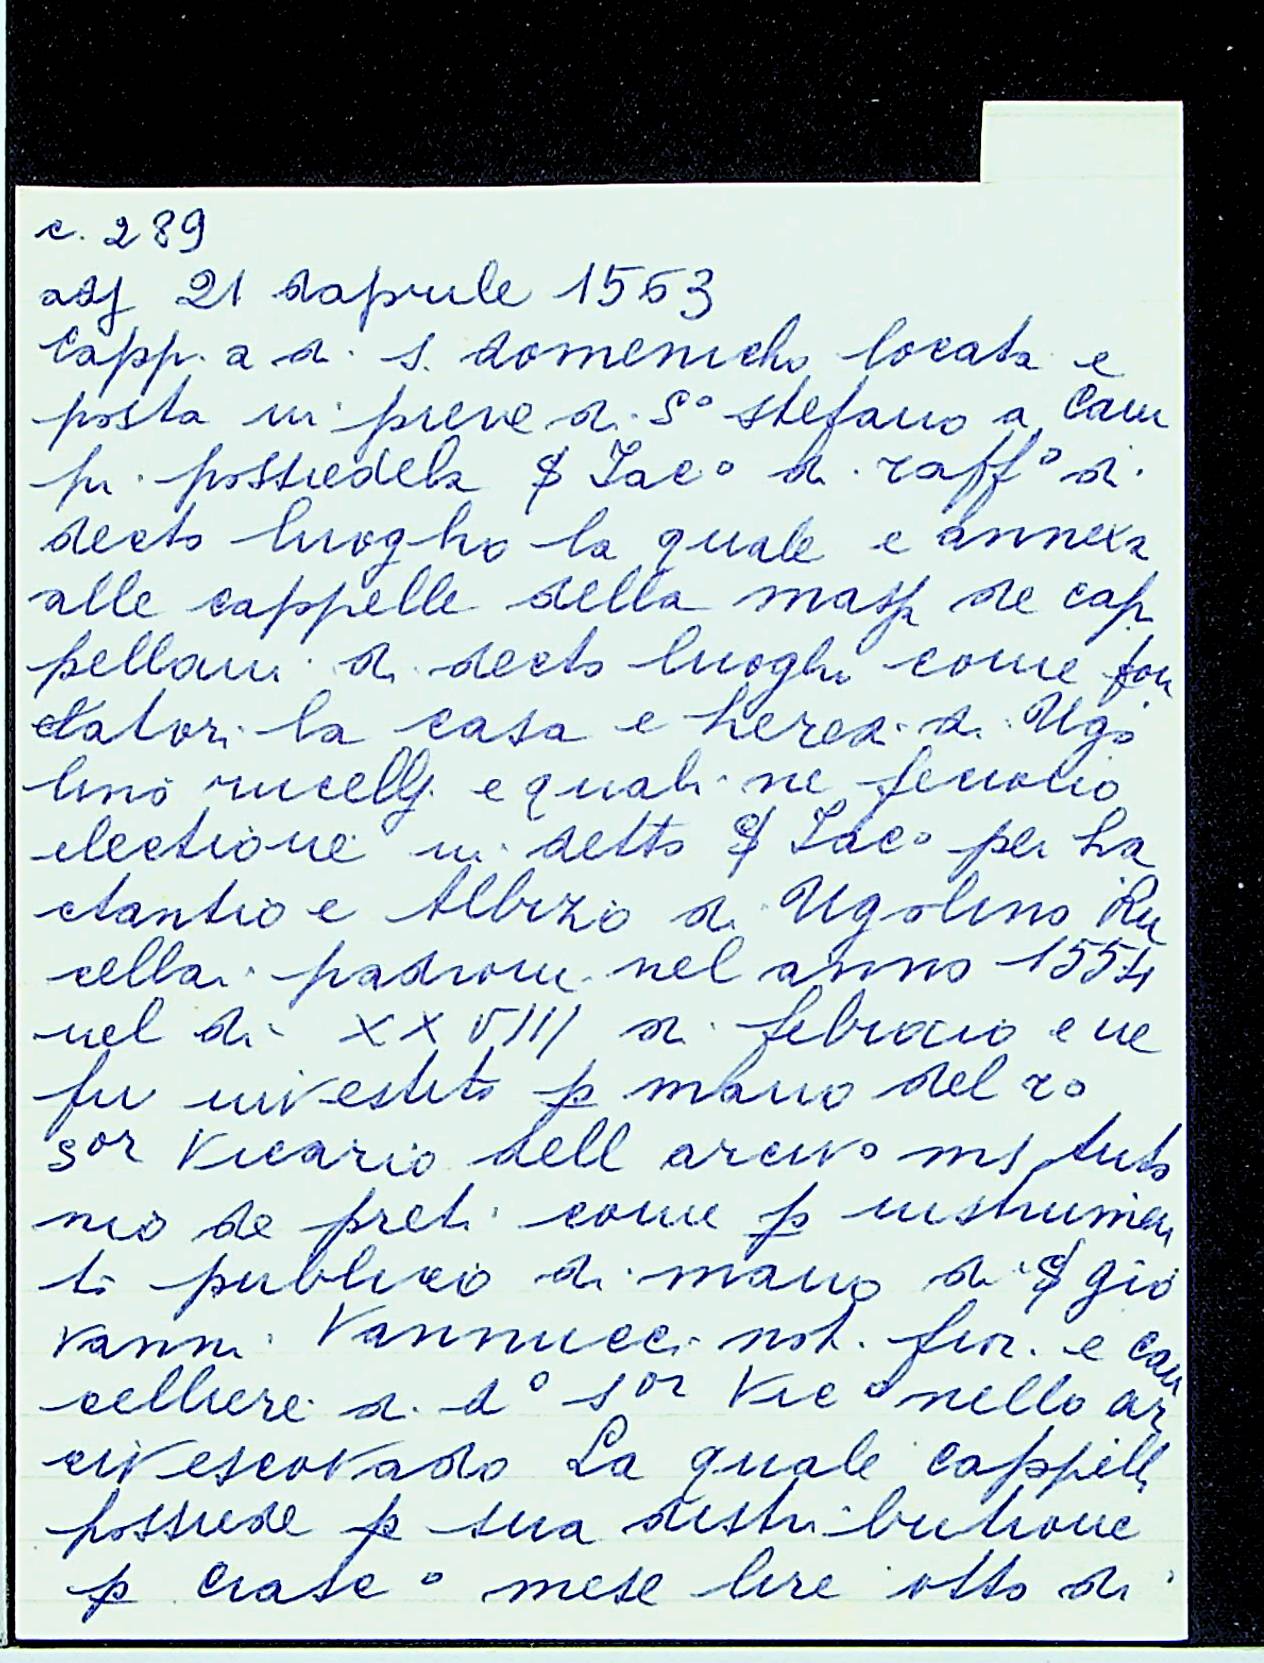 c. 289
adj 21 daprile 1563
Capp.a di S. domenicho locata e
posta in pieve di S.o Stefano a Cam
pi possiedela S Iac.o di raff.o di
decto luogho la quale e annexa
alle cappelle della massa de cap
pellani di decto luogho come fon
datori la casa e heredi di Ugo
lino rucellj e quali ne fenocio
electione in detto S Iac.o per La
ctantio e Albizo di Ugolino Ru
cellai padroni nel anno 1554
nel di XXVIII di febraio e ne
fu investito p mano del r.o
s.or Vicario dell arciv.o ms Anto
nio de preti come p instrumen
to publico di mano di S gio
vanni Vannucci not. fior. e can
celliere di d.o s.or Vic.o nello ar
civescovado La quale cappella
possiede p sua distributione
p ciasc.o mese lire otto di